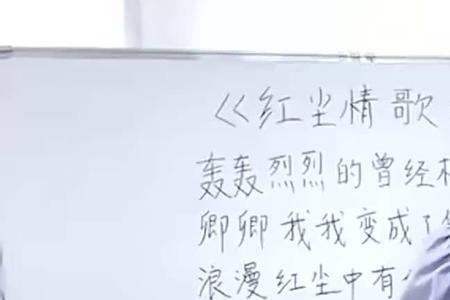 《红尘情歌
轰轰烈烈的曾经
卿卿我我变成了
浪漫红尘中有